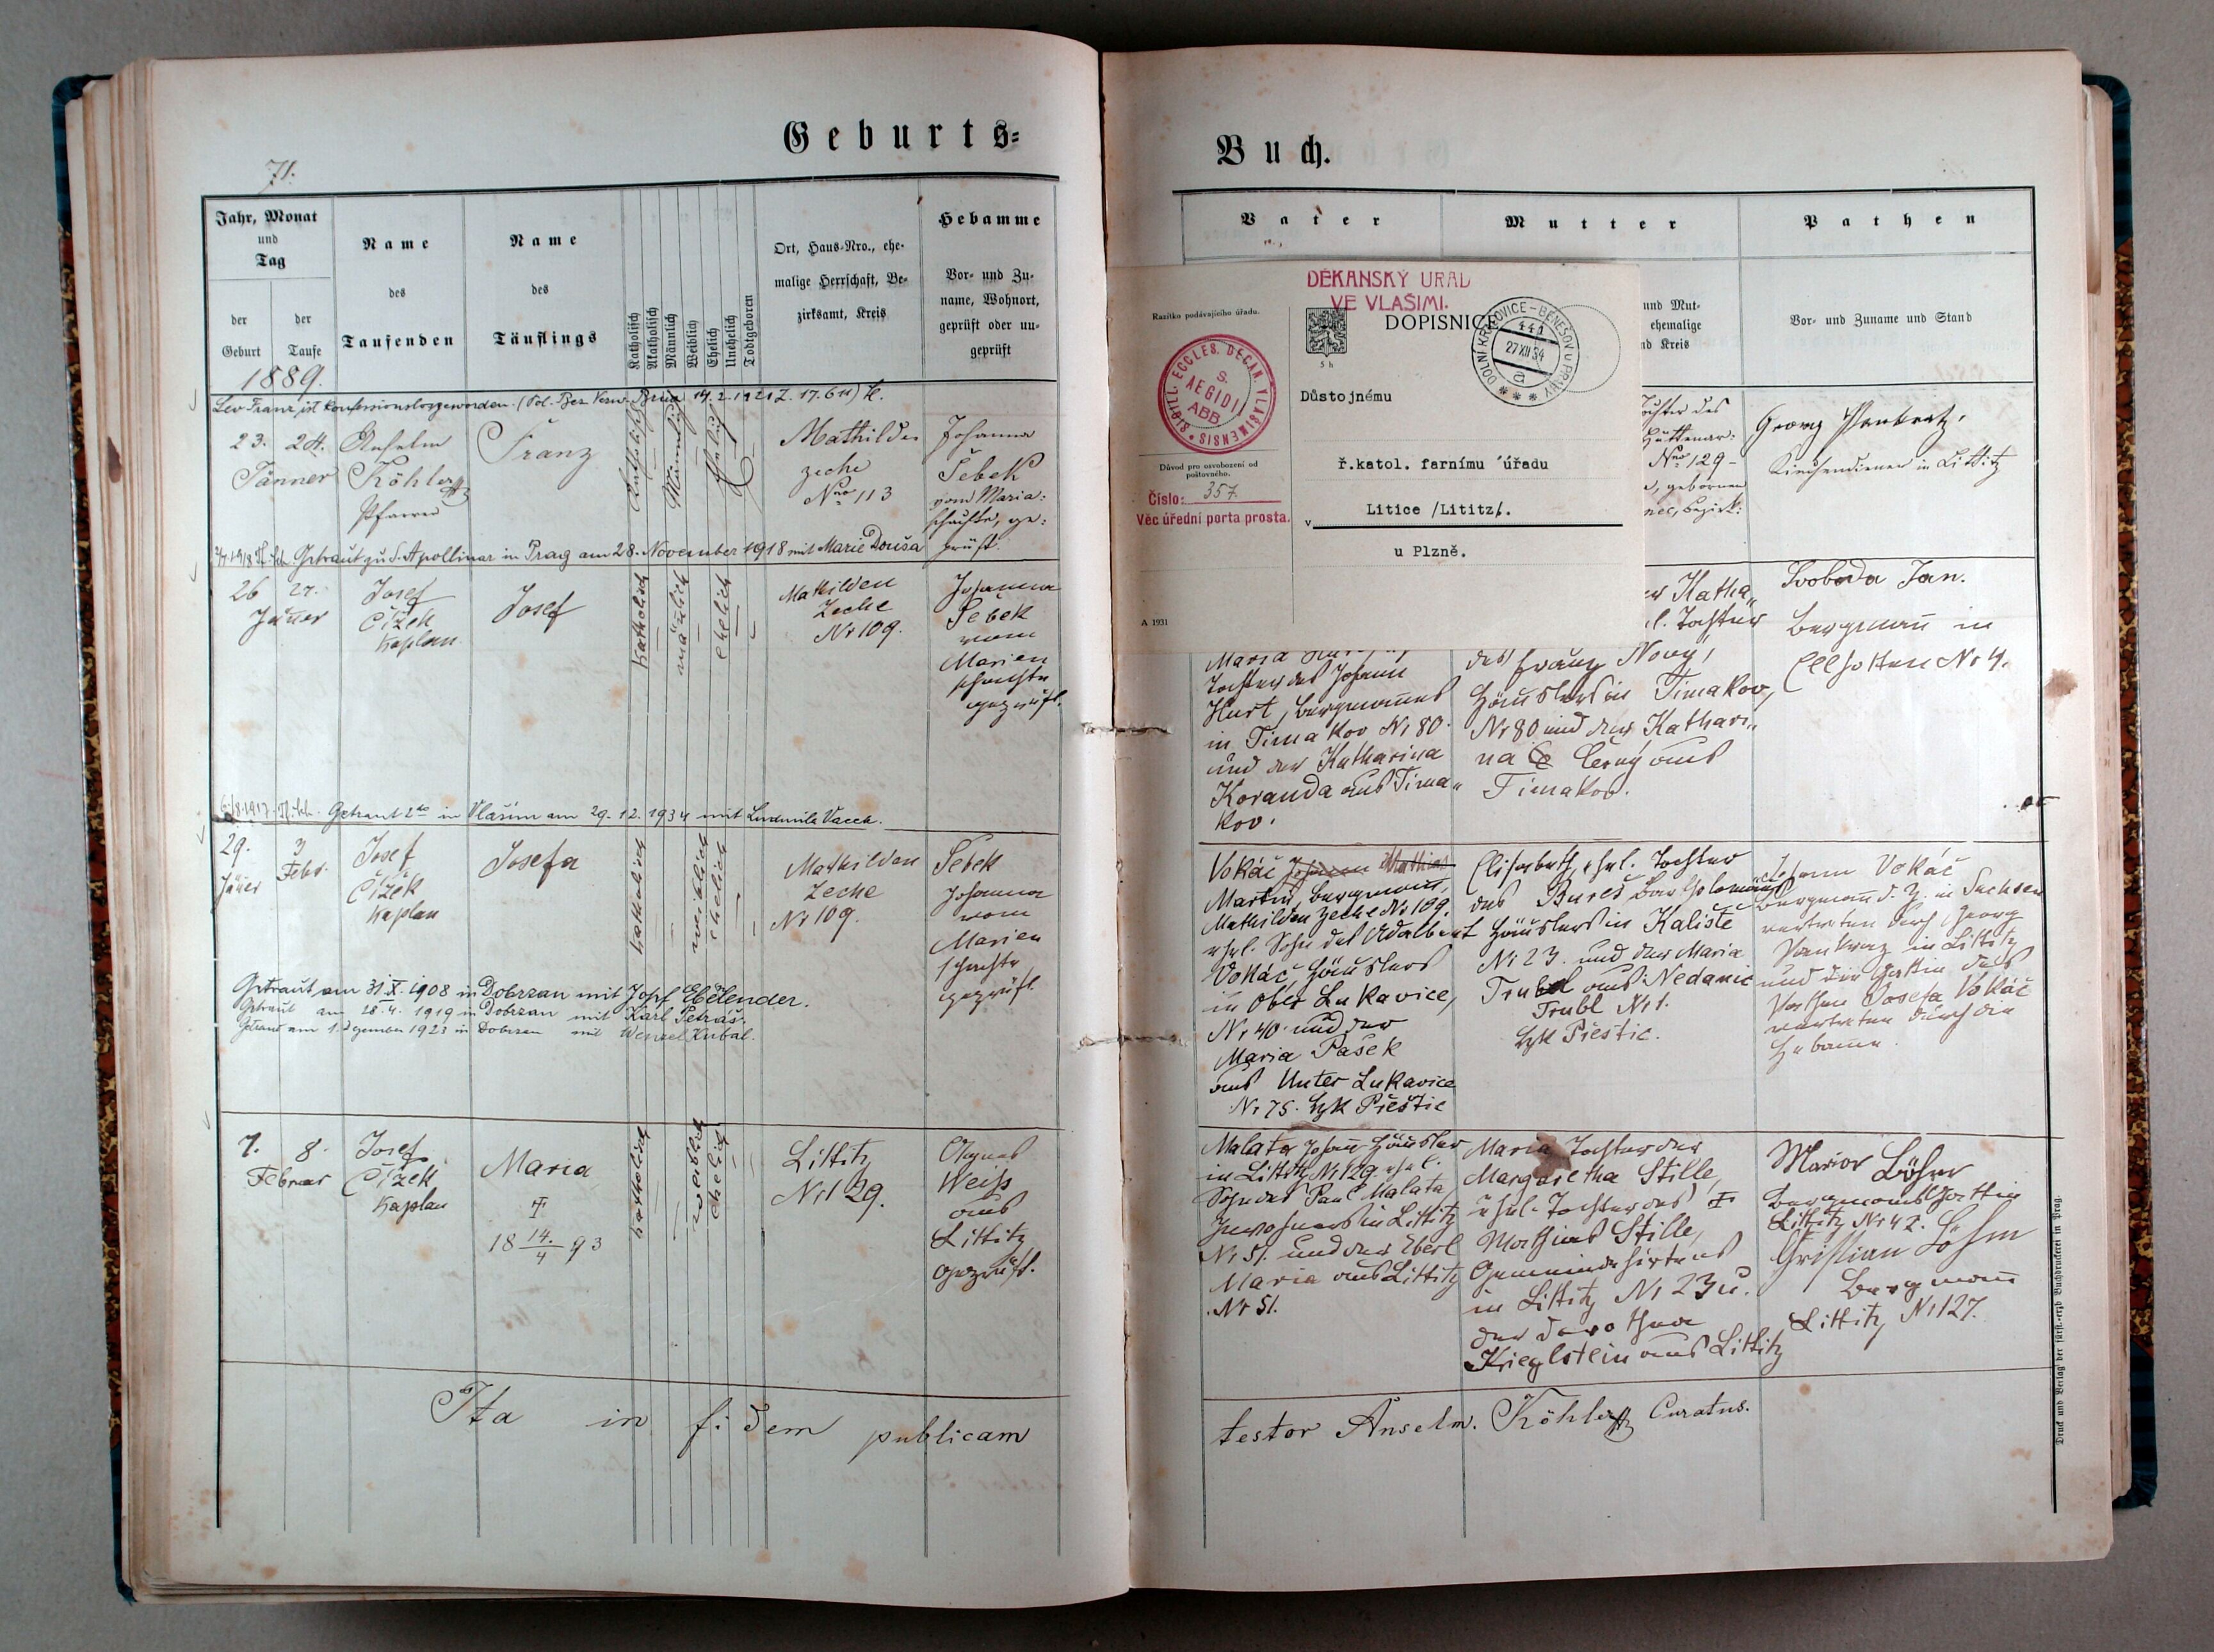 Geburts=
71.
Jahr, Monat
und
Tag
der Geburt
der Taufe
Name
des
Taufenden
Name
des
Täuflings
Katholisch
Akatholisch
Männlich
Weiblich
Ehelich
Unehelich
Todtgeboren
Ort, Haus-Nro., ehe-
malige Herrschaft, Be-
zirksamt, Kreis
Hebamme
Vor- und Zu-
name, Wohnort,
geprüft oder un-
geprüft
1889.
Lev Franz ist konfessionslos geworden. (Pol. Bez. Verw. 14.2.1921 Z. 17.611)
23. 24. Anselm Franz Mathilden Johanna
Jänner Köhler zeche Šebek
Pfarrer Nro 113 vom Maria=
schachte, ge=
prüft.
Katholisch
Männlich
Ehelich
Getraut zu S. Apollinar in Prag am 28. November 1918 mit Marie Douša
26 27. Josef Josef Mathilden Johanna
Jäner Čížek Zeche Šebek
Kaplan Nr 109. vom
Marien
schachte
geprüft.
katholisch
mänlich
ehelich
Getraut 2do in Vlašim am 29.12.1934 mit Ludmila Vacek.
29. 3 Josef Josefa Mathilden Šebek
Jäner Febr. Čížek Zeche Johanna
Kaplan Nr 109. vom
Marien
schachte
geprüft
katholisch
weiblich
ehelich
Getraut am 31.X.1908 in Dobrzan mit Josef Ebelender.
Getraut am 28.4.1919 in Dobrzan mit Karl Petráš.
Getraut am 1. Dezember 1923 in Dobrzan mit Wenzel Kubal.
7. 8. Josef Maria Littitz Agnes
Februar Čížek Nr 129. Weiß
Kaplan aus
18 14./4 93 Littitz
geprüft.
katholisch
weiblich
ehelich
Ita in fidem publicam
Buch.
Vater
Mutter
Pathen
und Mut-
ehemalige
nd Kreis
Vor- und Zuname und Stand
DĚKANSKÝ ÚŘAD
VE VLAŠIMI.
Razítko podávajícího úřadu.
DOPISNICE
5 h
DOLNÍ KRALOVICE-BENEŠOV U PRAHY
441
27 XII 34
a
SIGILL. ECCLES. DECAN. VLAŠIMENSIS
S.
AEGIDI
ABB.
Důstojnému
Důvod pro osvobození od
poštovného.
ř.katol. farnímu úřadu
Číslo: 357
Věc úřední porta prosta.
v Litice /Lititz/.
u Plzně.
A 1931
Tochter des
Hüttenar=
Nro 129-
, gebornen
Bezirk:
Georg Pankratz,
Kirchendiener in Littitz
er Katha„
l. Tochter
des Franz Nový,
Häuslers in Timakov,
Nr 80 und der Kathari„
na Černý aus
Timakov.
Tochter des Johann
Hurt, Bergmannes
in Timakov Nr 80.
und der Katharina
Koranda aus Tima„
kov.
Svoboda Jan.
Bergmañ in
Ellhotten Nr 4.
Vokáč Johann Mathias
Martin, Bergmann,
Mathilden Zeche Nr 109.
ehel. Sohn des Adalbert
Vokáč, Häuslers
in Ober Lukavice,
Nr 40. und der
Maria Pašek
aus Unter Lukavice
Nr 75. Bzk Přeštic
Elisabeth, ehel. Tochter
des Bureš Bartholomäus
Häuslers in Kalište
Nr 23. und der Maria
Trubl aus Nedanic
Trubl Nr 1.
Bzk Přeštic.
Johann Vokáč
Bergmañ d. Z. in Sachsen
vertreten durch Georg
Pankraz in Littitz
und die Gattin des
Pathen Josefa Vokáč
vertreten durch die
Hebamme.
Malata Johañ Häusler
in Littitz Nr 129. ehel.
Sohn des Paul Malata
Inwohners in Littitz
Nr 51. und der Eberl
Maria aus Littitz
Nr 51.
Maria Tochter der
Margaretha Stille,
ehel. Tochter des
Mathias Stille,
Gemeindehirtens
in Littitz Nr 23 u.
der Dorothea
Krieglstein aus Littitz
Maria Böhm
Bergmanns Gattin
Littitz Nr 42.
Christian Böhm
Bergmann
Littitz Nr 127.
testor Anselm. Köhler Curatus.
Druck und Verlag der fürst.-erzb Buchdruckerei in Prag.